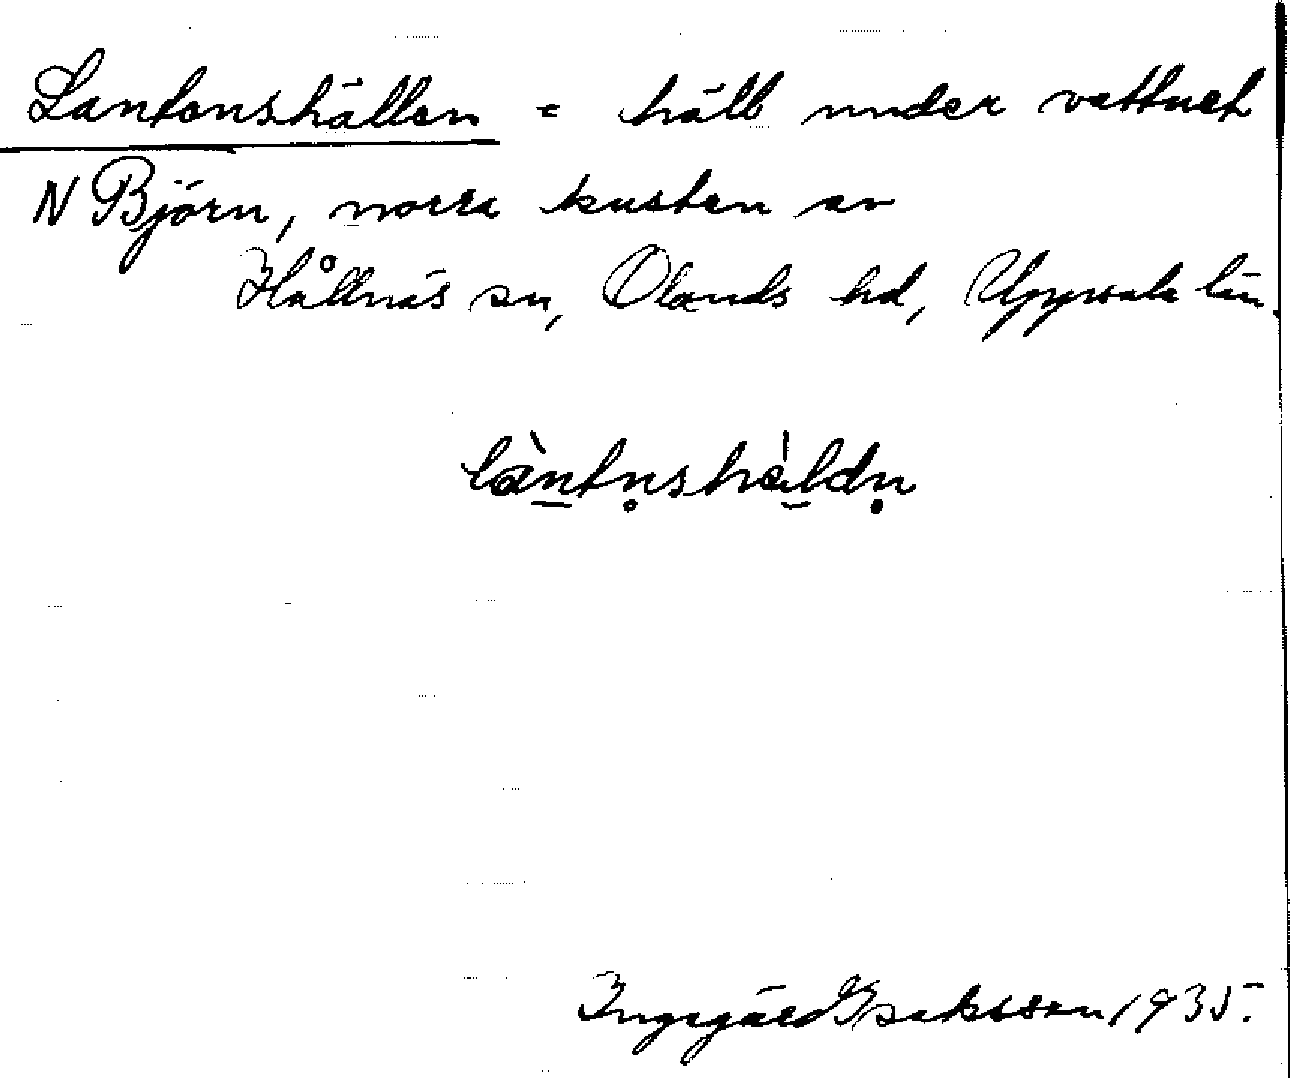 Lantonshällen = häll under vattnet
N Björn, norra kusten av
Hållnäs sn, Olands hd, Uppsala län.
làntn̥shäldṇ
Ingegärd Isaksson 1935.